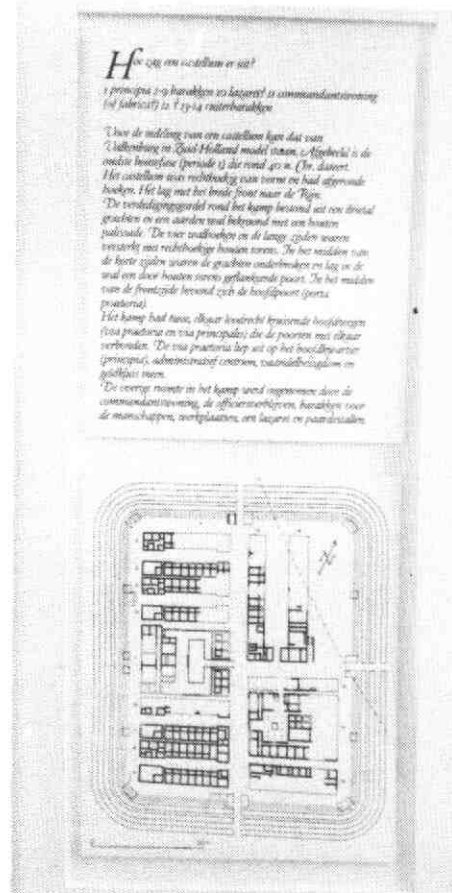 Hoe zag een castellum er uit?
1 principia 2-9 barakken 10 lazaret? 11 commandantswoning
(of fabrica?) 12 ? 13-14 ruiterbarakken
Voor de indeling van een castellum kan dat van
Valkenburg in Zuid-Holland model staan. Afgebeeld is de
oudste bouwfase (periode 1) die rond 40 n. Chr. dateert.
Het castellum was rechthoekig van vorm en had afgeronde
hoeken. Het lag met het brede front naar de Rijn.
De verdedigingsgordel rond het kamp bestond uit een drietal
grachten en een aarden wal bekroond met een houten
palissade. De vier walhoeken en de lange zijden waren
versterkt met rechthoekige houten torens. In het midden van
de korte zijden waren de grachten onderbroken en lag in de
wal een door houten torens geflankeerde poort. In het midden
van de frontzijde bevond zich de hoofdpoort (porta
praetoria).
Het kamp had twee, elkaar loodrecht kruisende hoofdwegen
(via praetoria en via principalis) die de poorten met elkaar
verbonden. De via praetoria liep uit op het hoofdkwartier
(principia), administratief centrum, vaandelheiligdom en
geldkluis ineen.
De overige ruimte in het kamp werd ingenomen door de
commandantswoning, de officiersverblijven, barakken voor
de manschappen, werkplaatsen, een lazaret en paardestallen.
N